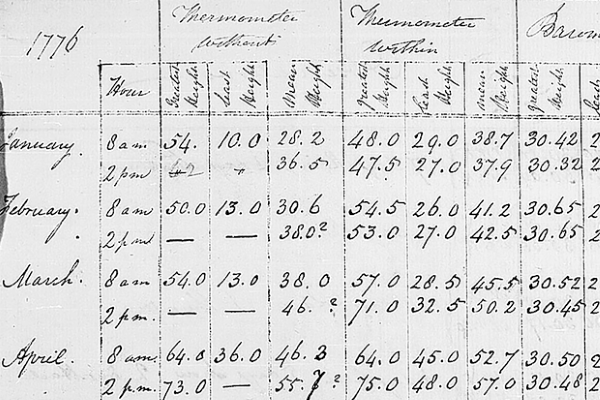 1776
Thermometer without
Thermometer within
Barom
Hour Greatest Height Least Height Mean Height Greatest Height Least Height Mean Height Greatest Height Leas
January. 8 am 54. 10.0 28.2 48.0 29.0 38.7 30.42 2
2 pm 36.5 47.5 27.0 37.9 30.32 2
February. 8 am 50.0 13.0 30.6 54.5 26.0 41.2 30.65 2
2 pm — — 38.0? 53.0 27.0 42.5 30.65 2
March. 8 am 54.0 13.0 38.0 57.0 28.5 45.5 30.52 2
2 pm. — — 46. ? 71.0 32.5 50.2 30.45 2
April. 8 am. 64.0 36.0 46.3 64.0 45.0 52.7 30.50 2
2 p.m. 73.0 — 55.7? 75.0 48.0 57.0 30.48 2